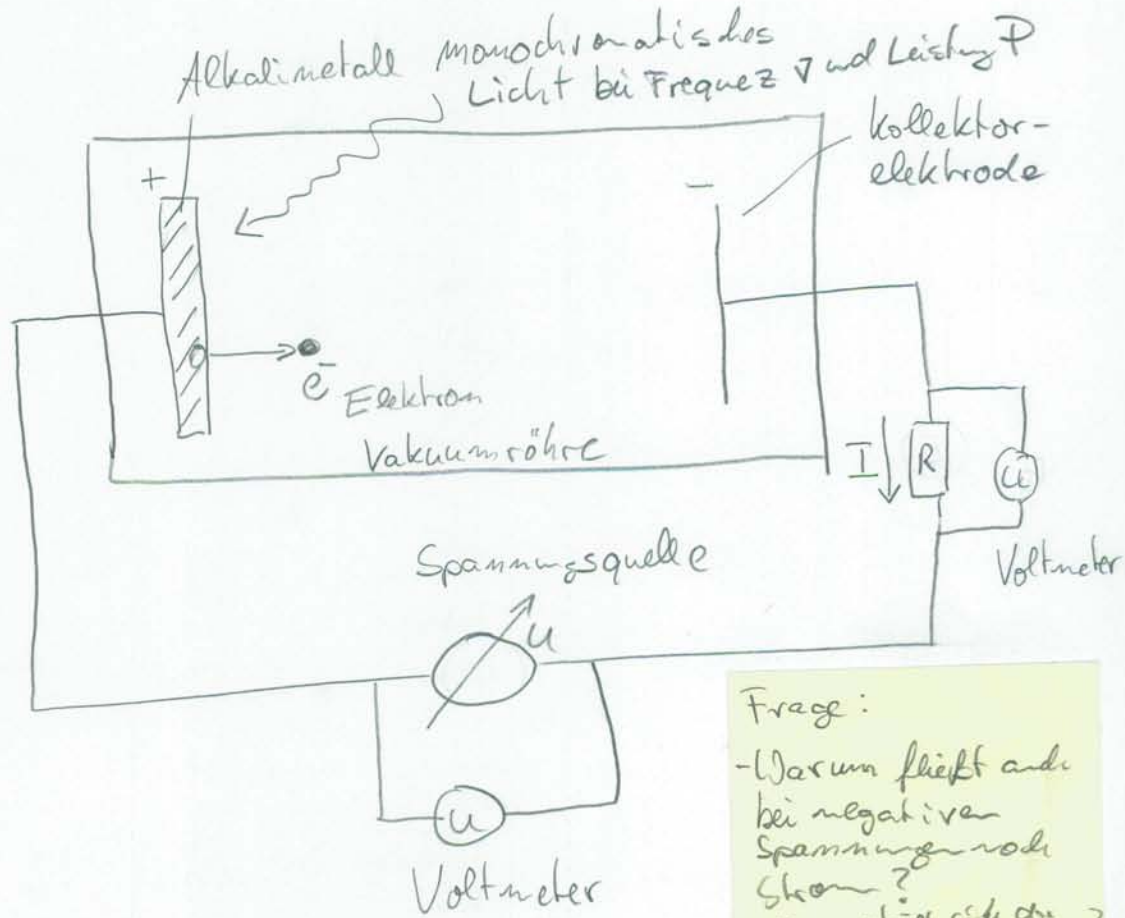 Alkalimetall monochromatisches
Licht bei Frequez ν und Leistung P
Kollektor-
elektrode
+
-
e⁻ Elektron
Vakuumröhre
I
R
U
Voltmeter
Spannungsquelle
U
U
Voltmeter
Frage:
- Warum fließt auch
bei negativen
Spannungen noch
Strom?